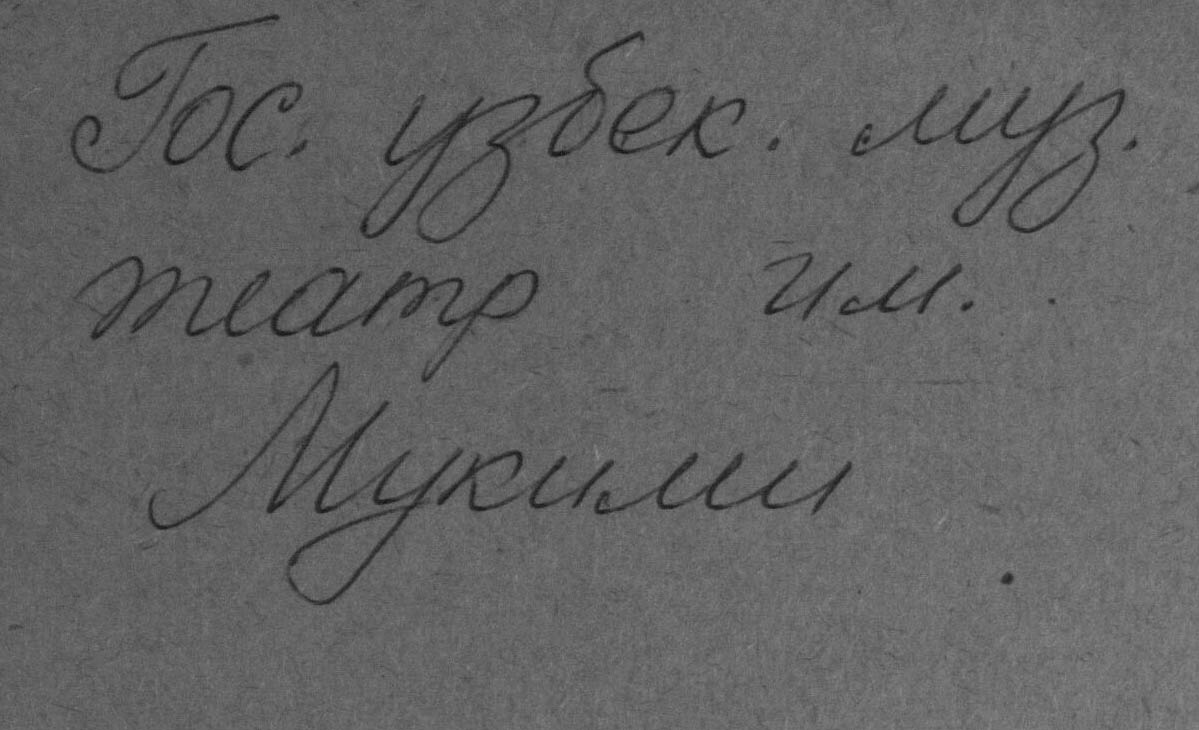 Гос. узбек. муз.
театр им.
Мукими